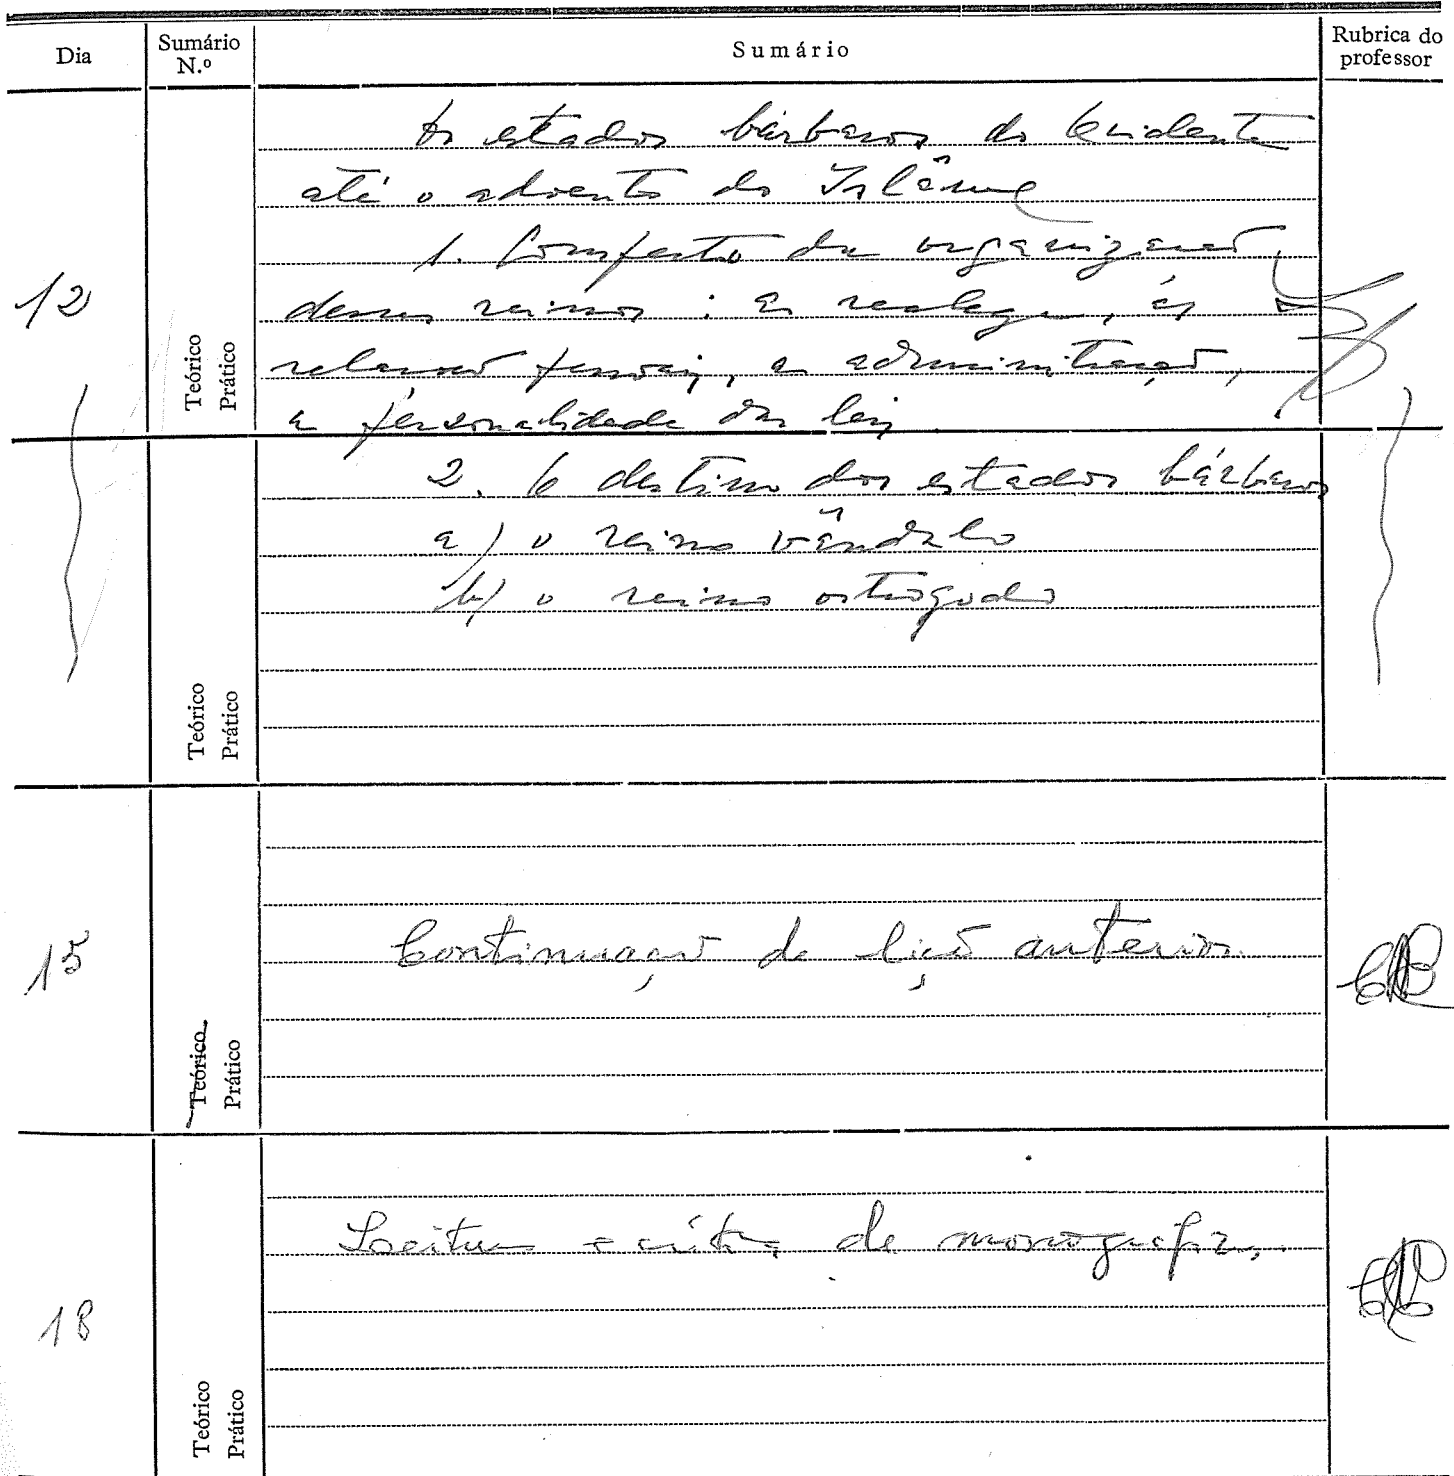 Dia
Sumário
N.º
Sumário
Rubrica do
professor
12
Teórico
Prático
Os estados bárbaros do Ocidente
até o advento do Islâme
1. Conspecto da organização
desses reinos : a realeza, as
relações pessoais, a administração,
a personalidade das leis
Teórico
Prático
2. O destino dos estados bárbaros
a) o reino vândalo
b) o reino ostrogodo
15
Teórico
Prático
Continuação da lição anterior.
18
Teórico
Prático
Leitura e crítica de monografias.